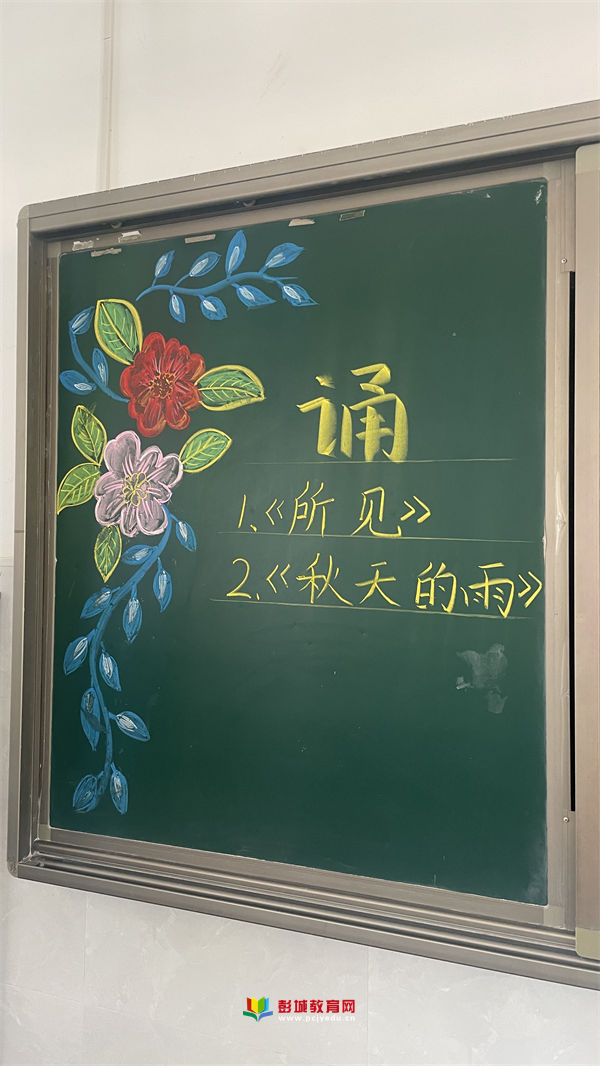 诵
1.《所见》
2.《秋天的雨》
彭城教育网
www.pcjyedu.cn